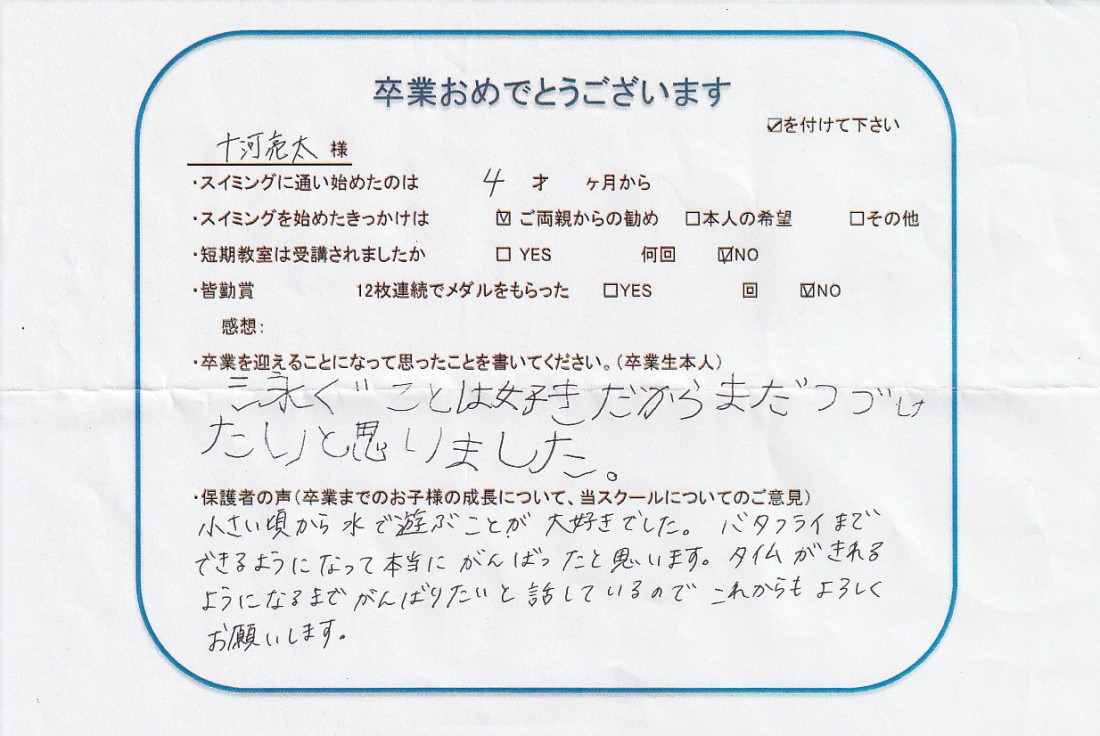 卒業おめでとうございます
☑を付けて下さい
十河亮太 様
・スイミングに通い始めたのは 4 才 ヶ月から
・スイミングを始めたきっかけは ☑ ご両親からの勧め □本人の希望 □その他
・短期教室は受講されましたか □ YES 何回 ☑NO
・皆勤賞 12枚連続でメダルをもらった □YES 回 ☑NO
感想:
・卒業を迎えることになって思ったことを書いてください。(卒業生本人)
泳ぐことは好きだからまだつづけ
たいと思いました。
・保護者の声(卒業までのお子様の成長について、当スクールについてのご意見)
小さい頃から水で遊ぶことが大好きでした。バタフライまで
できるようになって本当にがんばったと思います。タイムがきれる
ようになるまでがんばりたいと話しているのでこれからもよろしく
お願いします。